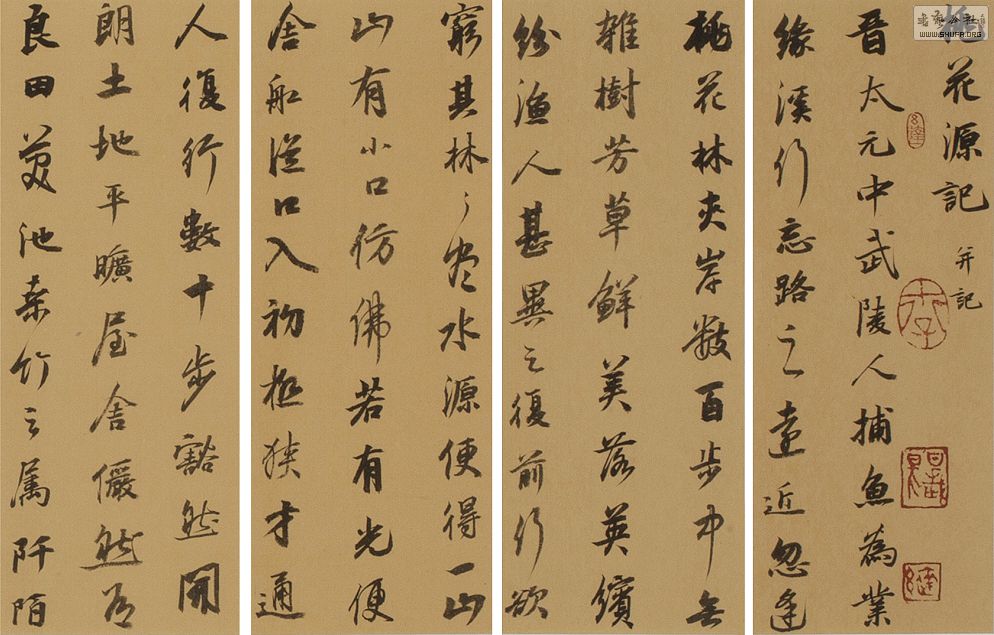 桃花源記 并記
晉太元中武陵人捕魚為業
緣溪行忘路之遠近忽逢
桃花林夾岸數百步中無
雜樹芳草鮮美落英繽
紛漁人甚異之復前行欲
窮其林々盡水源便得一山
山有小口仿佛若有光便
舍船從口入初極狹才通
人復行數十步豁然開
朗土地平曠屋舍儼然有
良田美池桑竹之屬阡陌
WWW.SHUFA.ORG